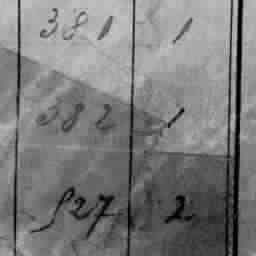 381 1
382 1
527 2